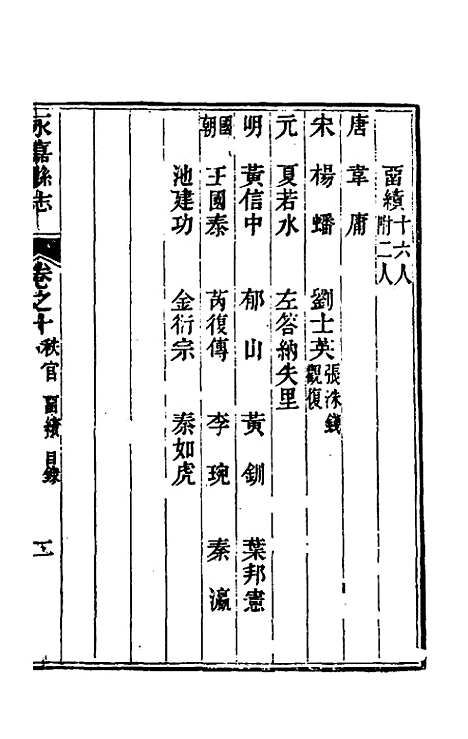 畱績十六人附二人
唐 韋庸
宋 楊蟠 劉士英 張洙錢觀復
元 夏若水 左答納失里
明 黃信中 郁山 黃釧 葉邦憲
國朝 王國泰 芮復傳 李琬 秦瀛
池建功 金衍宗 秦如虎
永嘉縣志 卷之十 秩官 畱績 目錄 一